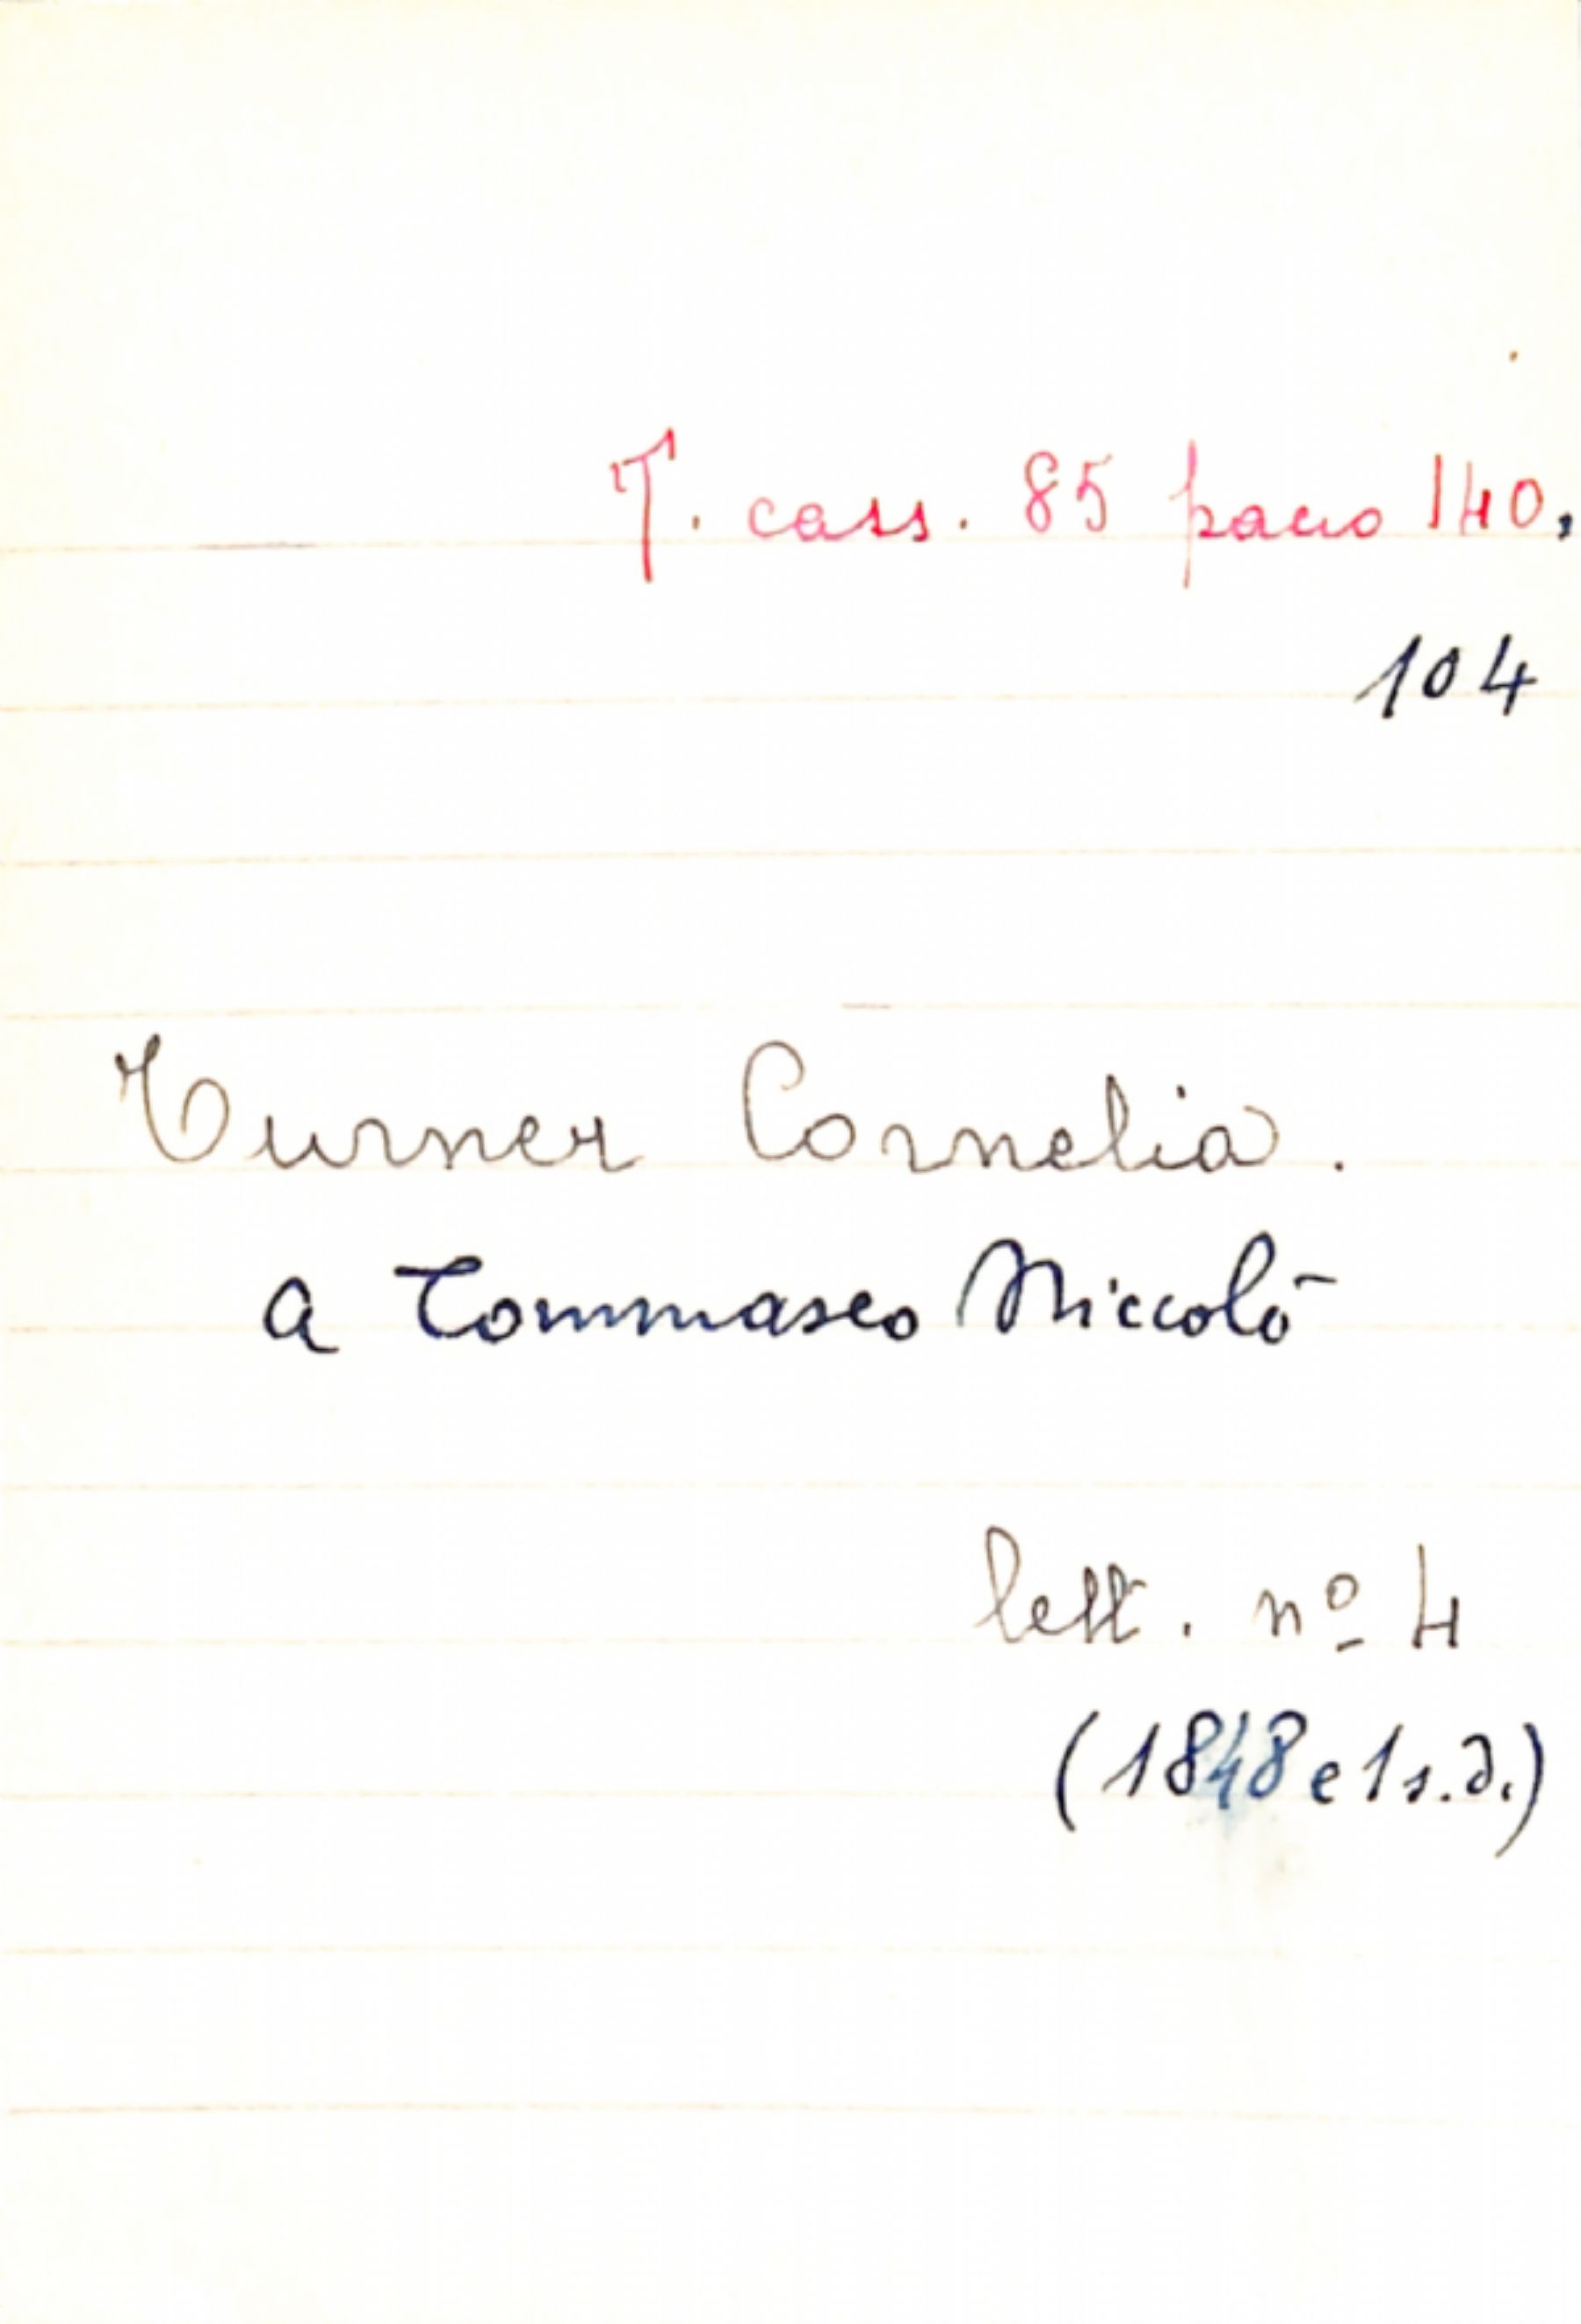 T. cass. 85 pacco 140,
104
Turner Cornelia.
a Tommaseo Niccolò
lett. nº 4
(1848 e 1 s.d.)